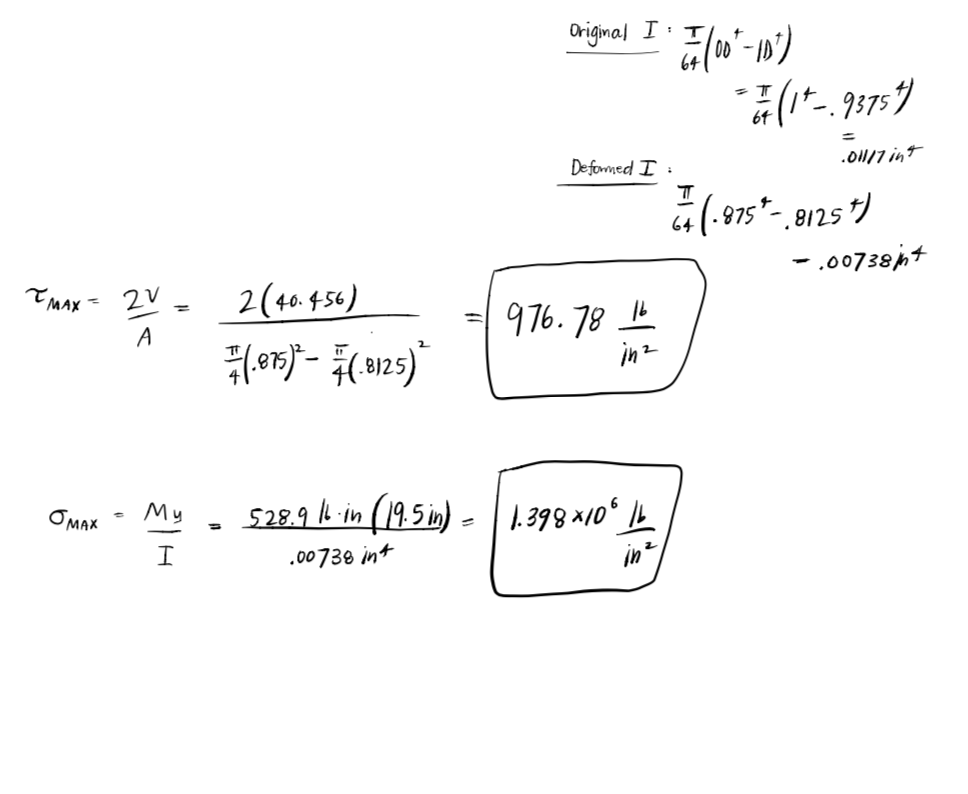 Original I : π/64 (OD⁴ - ID⁴)
= π/64 (1⁴ - .9375⁴)
=
.01117 in⁴
Deformed I :
π/64 (.875⁴ - .8125⁴)
= .00738 in⁴
τMAX = 2V/A = 2(40.456) / (π/4 (.875)² - π/4 (.8125)²) = 976.78 lb/in²
σMAX = My/I = 528.9 lb·in (19.5 in) / .00738 in⁴ = 1.398 ×10⁶ lb/in²